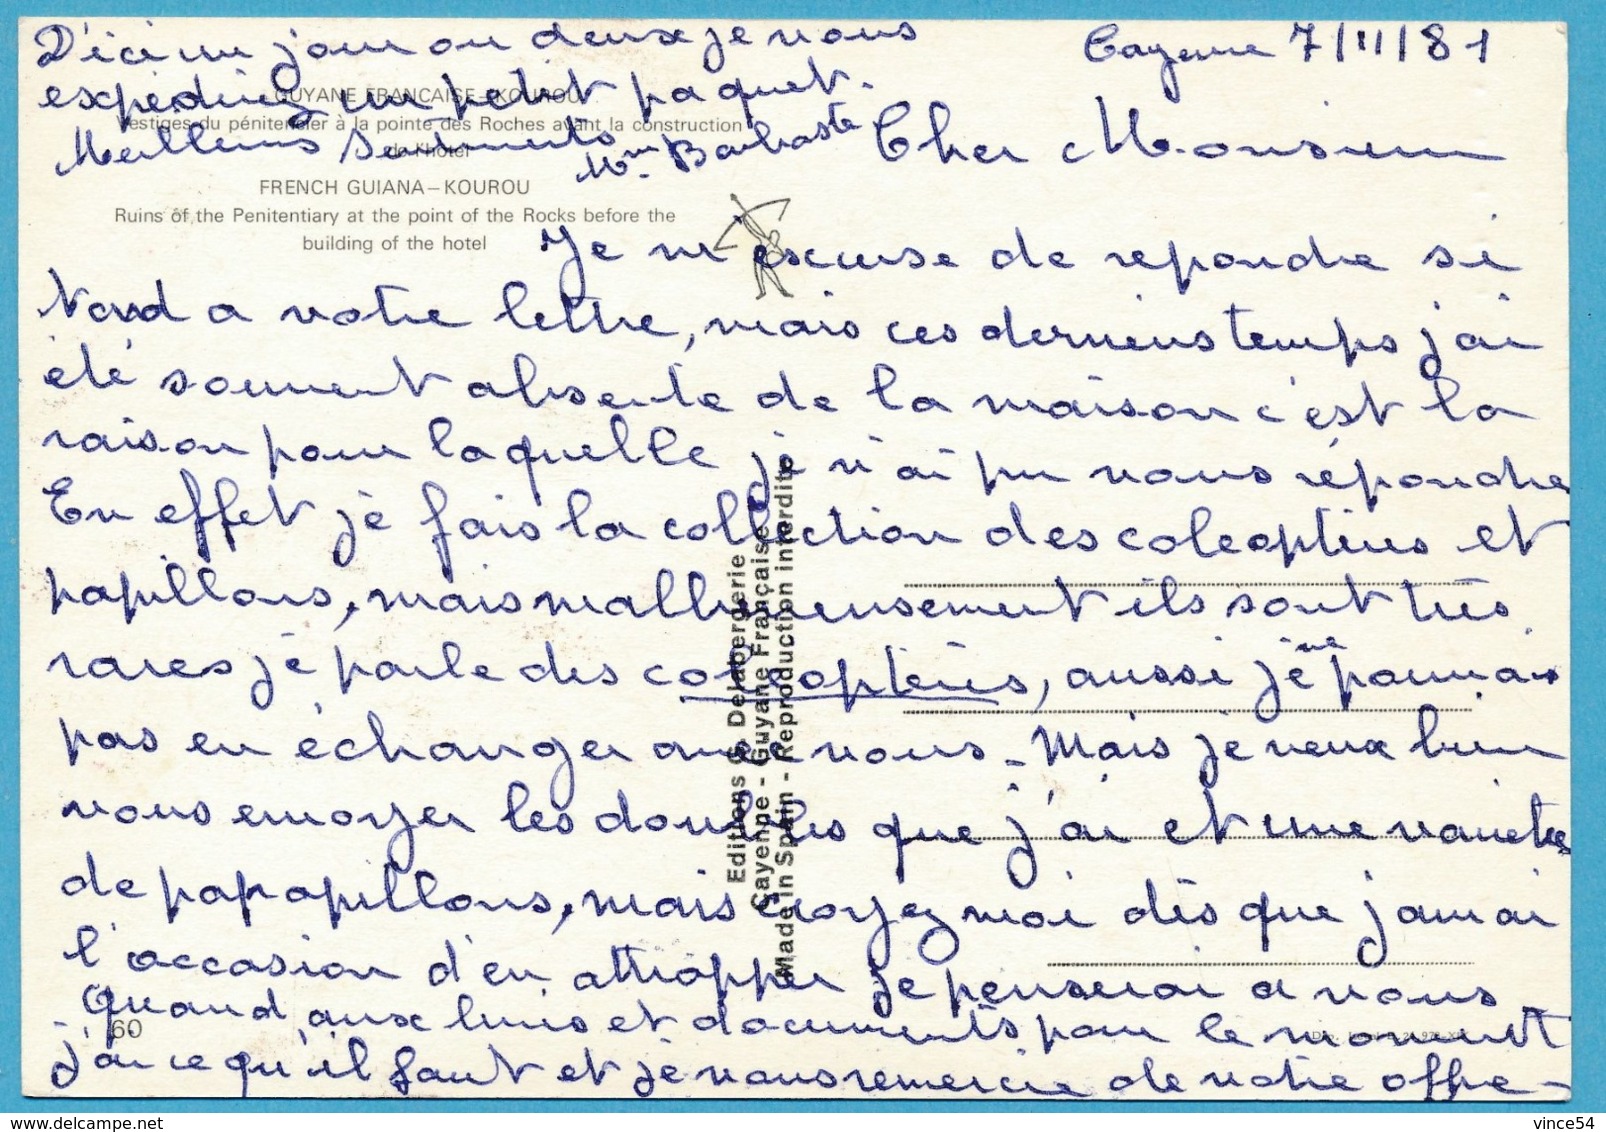 Cayenne 7/11/81
Cher Monsieur
Je m'excuse de repondre si
tard a votre lettre, mais ces derniers temps j'ai
été souvent absente de la maison c'est la
raison pour laquelle je n'ai pu vous répondre
En effet je fais la collection des coleoptères et
papillons, mais malheureusement ils sont très
rares je parle des coleoptères, aussi je ne pourrais
pas en échanger avec vous - Mais je veux bien
vous envoyer les doubles que j'ai et une varietée
de papapillons, mais croyez moi dès que j'aurai
l'occasion d'en attrapper je penserai a vous
Quand aux livres et documents pour le moment
j'ai ce qu'il faut et je vous remercie de votre offre -
D'ici un jour ou deux je vous
expédiez un petit paquet.
Meilleurs Sentiments
Mme Barbaste
GUYANE FRANCAISE - KOUROU
Vestiges du pénitencier à la pointe des Roches avant la construction
de l'hôtel
FRENCH GUIANA - KOUROU
Ruins of the Penitentiary at the point of the Rocks before the
building of the hotel
Editions G. Delabergerie
Cayenne - Guyane Française
Made in Spain - Reproduction interdite
60
delcampe.net
vince54